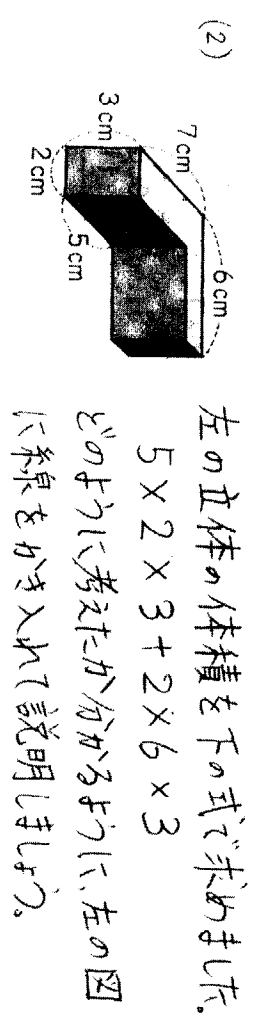 (2)
3cm
7cm
6cm
2cm
5cm
左の立体の体積を下の式で求めました。
5×2×3+2×6×3
どのように考えたか分かるように、左の図
に線をかき入れて説明しましょう。